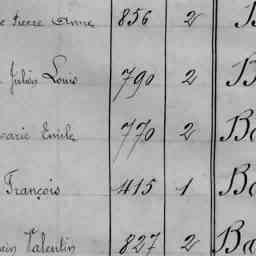 Pierre Anne 856 2 B
Julien Louis 790 2 B
Marie Emile 770 2 Ba
François 415 1 Ba
Valentin 827 2 Ba